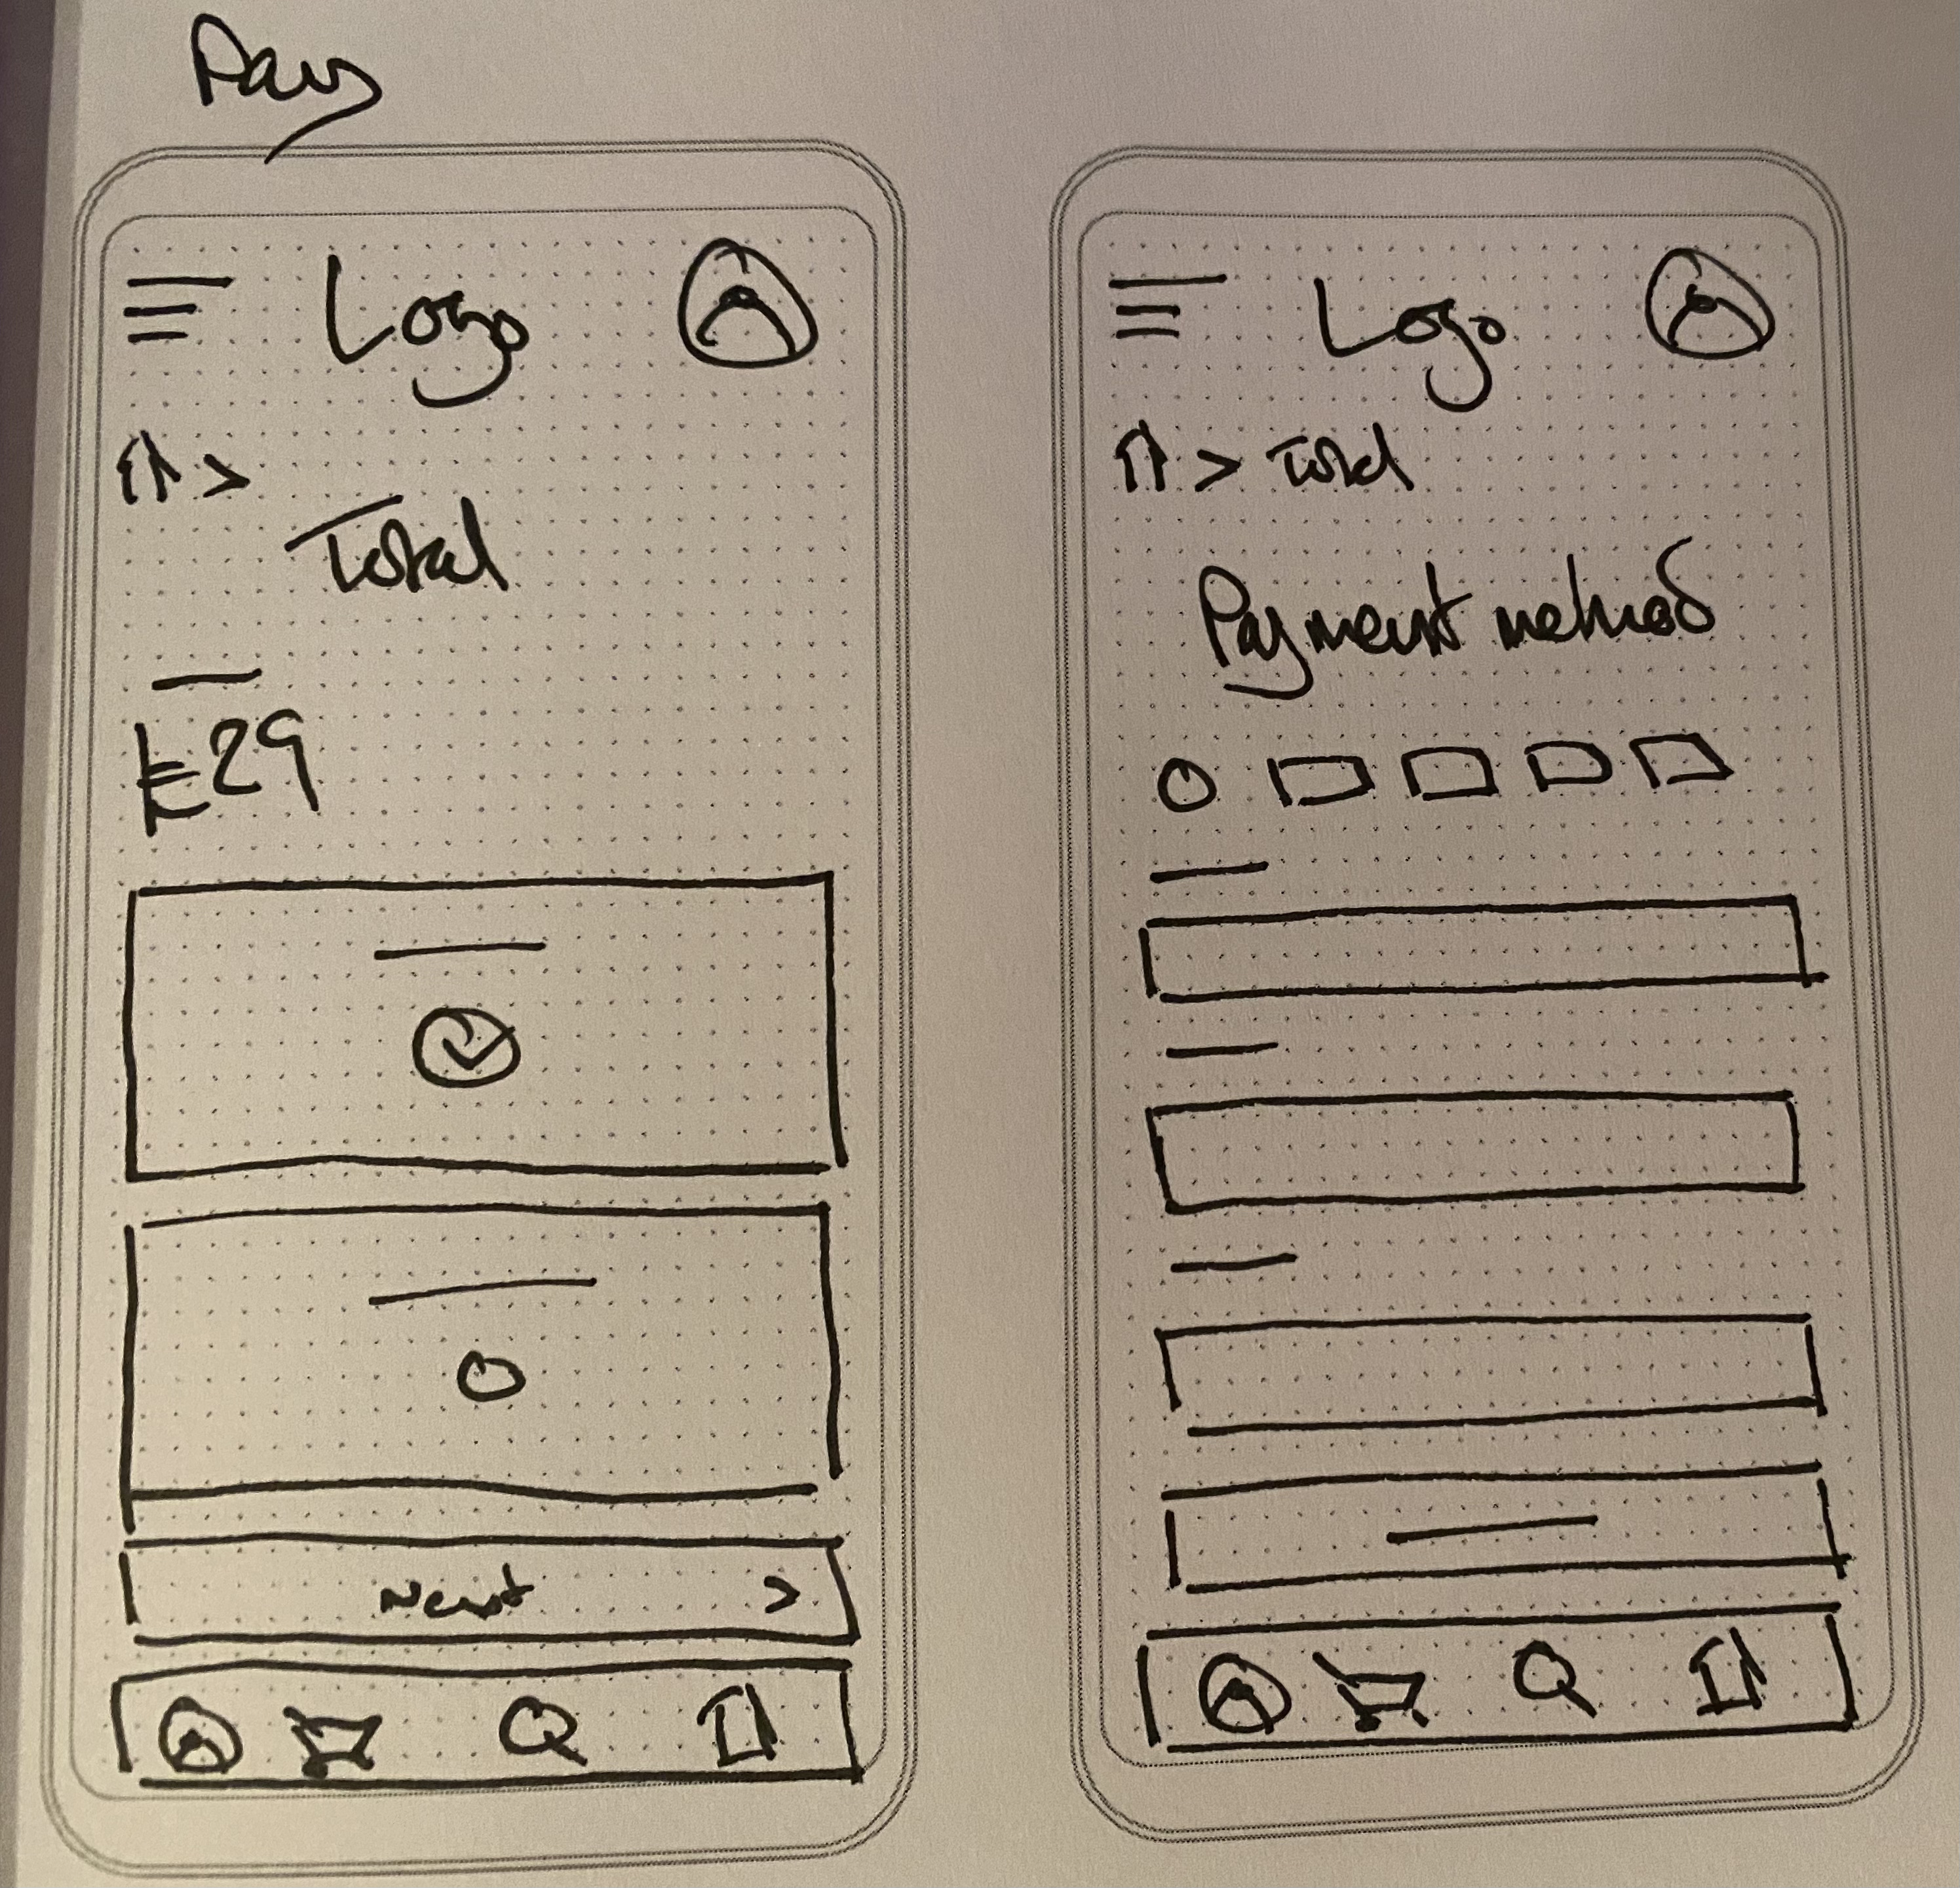 Pay
Logo
>
Total
£29
Next >
Logo
> Total
Payment method